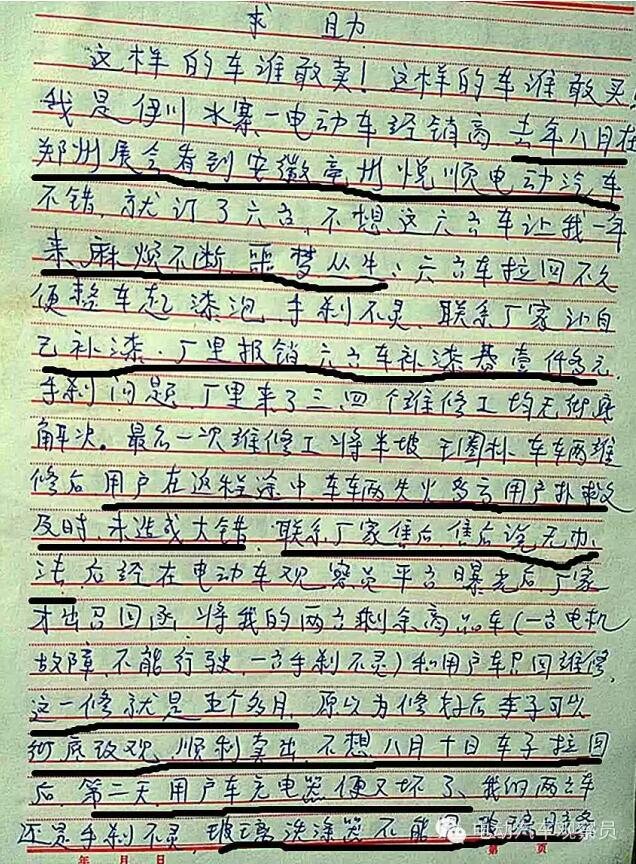 求助
这样的车谁敢卖！这样的车谁敢买！
我是伊川水寨一电动车经销商，去年八月在
郑州展会看到安徽亳州悦顺电动汽车
不错，就订了六台，不想这六台车让我一年
来麻烦不断，噩梦从生；六台车拉回不久
便整车起漆泡，手刹不灵，联系厂家让自
己补漆。厂里报销六台车补漆费壹仟多元，
手刹问题，厂里来了三、四个维修工均无彻底
解决。最后一次维修工将半坡 车车两维
修后用户在返程途中，车车两失火多亏用户扑救
及时，未造成大错，联系厂家售后，售后说无办
法，后经在电动车观察员平台曝光后，厂家
才出召回函，将我的两台剩余商品车（一台电机
故障，不能行驶，一台手刹不灵）和用户车召回维修，
这一修就是五个多月，原以为修好后车子可以
彻底改观，顺利卖出，不想八月十日车子拉回
后，第二天，用户车充电器便又坏了，我的两台车
还是手刹不灵，玻璃洗涤器不能
电动汽车观察员
年 月 日 第 页